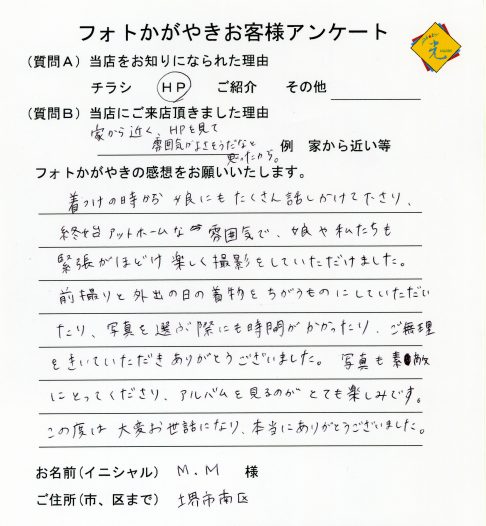 フォトかがやきお客様アンケート
光
(質問A)当店をお知りになられた理由
チラシ HP ご紹介 その他
(質問B)当店にご来店頂きました理由
家から近く、HPを見て
雰囲気がよさそうだなと
思ったから。
例 家から近い等
フォトかがやきの感想をお願いいたします。
着つけの時から娘にもたくさん話しかけて下さり、
終始アットホームな雰囲気で、娘や私たちも
緊張がほどけ楽しく撮影をしていただけました。
前撮りと外出の日の着物をちがうものにしていただい
たり、写真を選ぶ際にも時間がかかったり、ご無理
をきいていただきありがとうございました。写真も素敵
にとってくださり、アルバムを見るのがとても楽しみです。
この度は大変お世話になり、本当にありがとうございました。
お名前(イニシャル) M.M 様
ご住所(市、区まで) 堺市南区